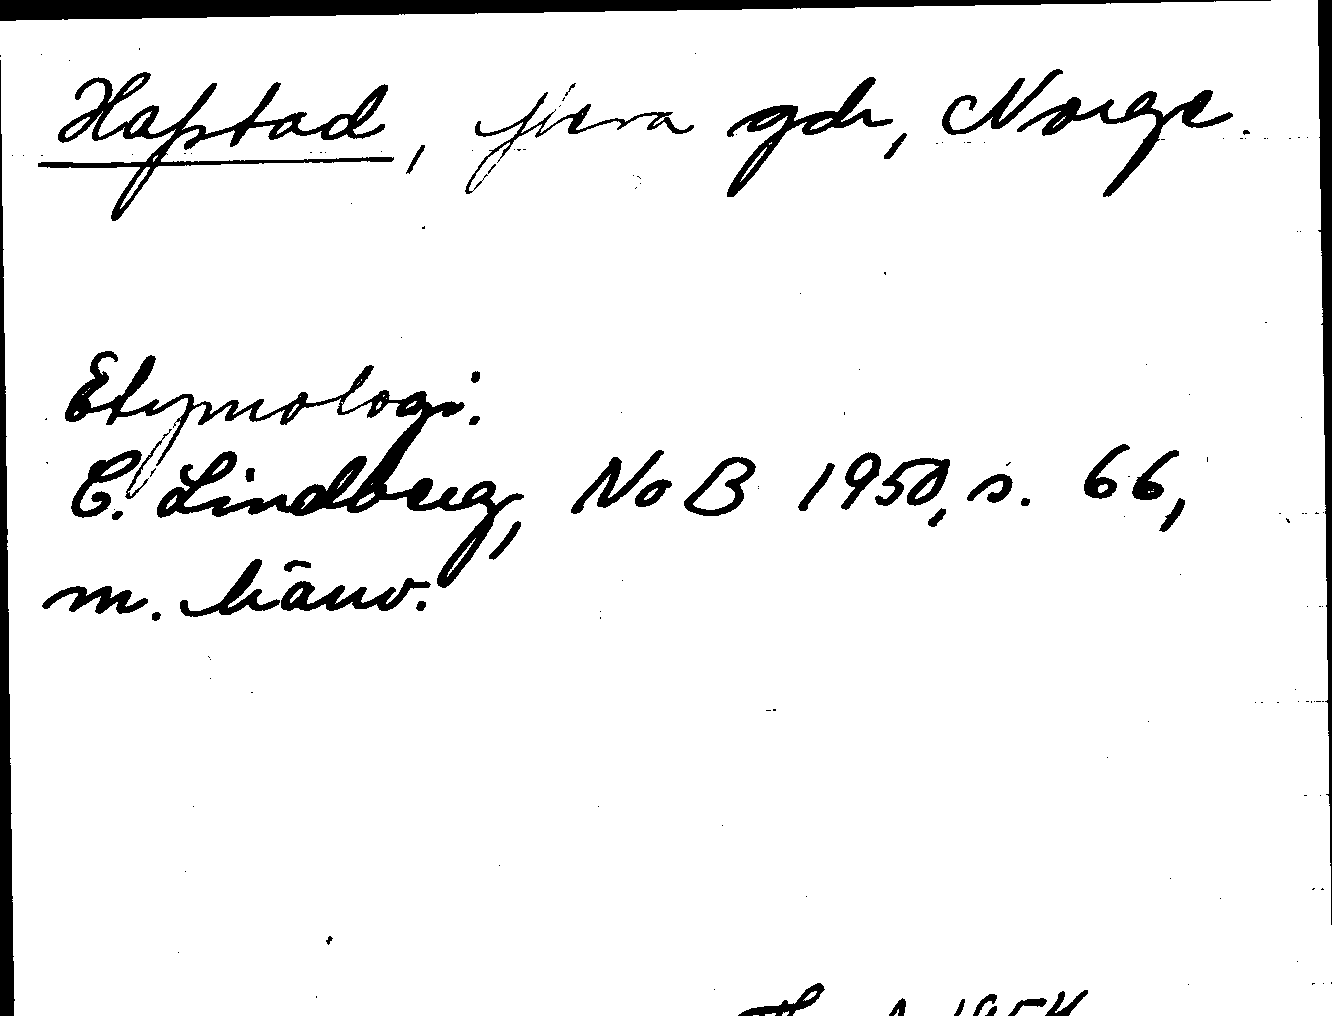 Hafstad, flera gdr, Norge.
Etymologi.
C. Lindberg, NoB 1950, s. 66,
m. hänv.
1954